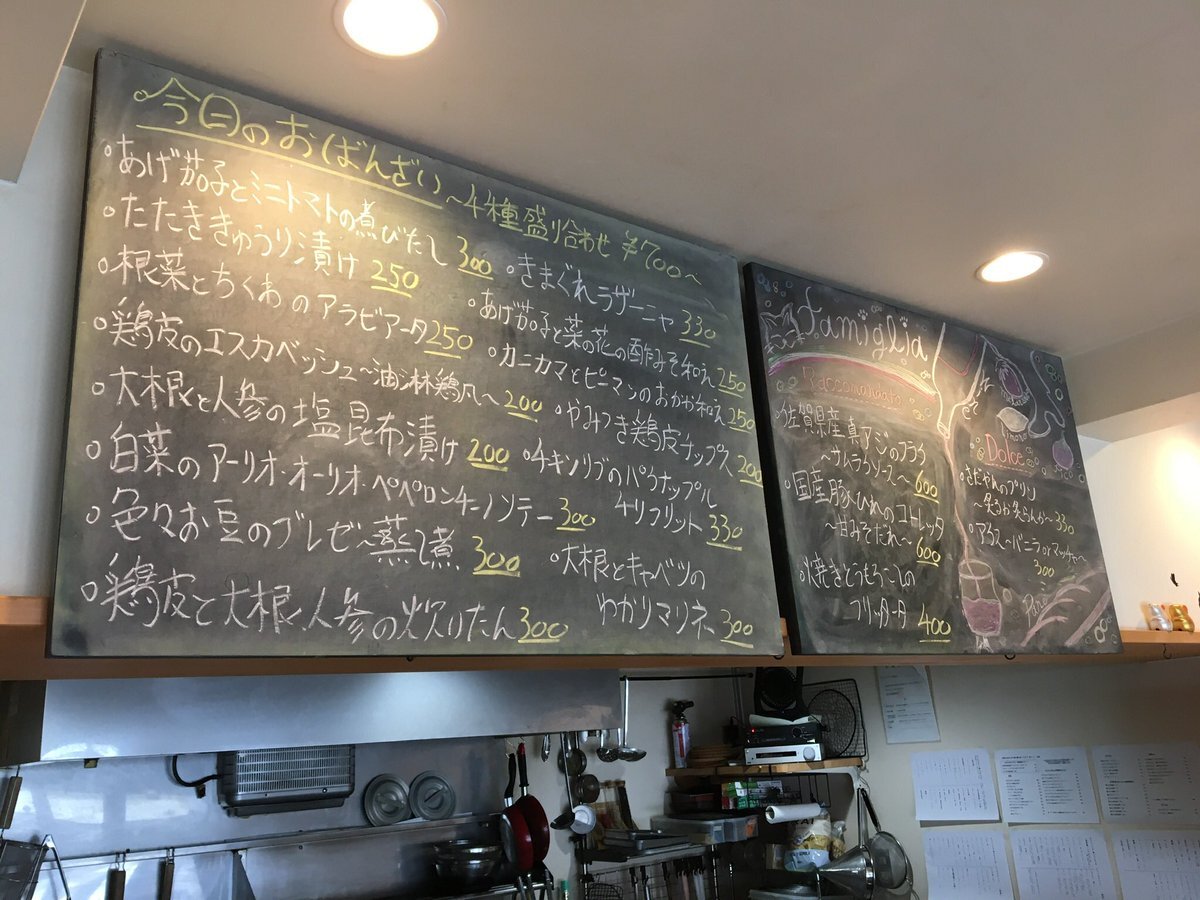 今日のおばんざい〜4種盛り合わせ ¥700〜
あげ茄子とミニトマトの煮びたし 300
たたききゅうり漬け 250
根菜とちくわのアラビアータ 250
鶏皮のエスカベッシュ〜油淋鶏風〜 200
大根と人参の塩昆布漬け 200
白菜のアーリオ・オーリオ・ペペロンチーノソテー 300
色々お豆のブレゼ〜蒸し煮 300
鶏皮と大根、人参の炊いたん 300
きまぐれラザーニャ 330
あげ茄子と菜の花の酢みそ和え 250
カニカマとピーマンのおかか和え 250
やみつき鶏皮チップス 200
チキンリブのパイナップル
チリフリット 330
大根とキャベツの
わかりマリネ 300
famiglia
Raccomandato
佐賀県産真アジのフライ
〜サルサソース〜 600
国産豚ひれのコトレッタ
〜甘みそだれ〜 600
焼きとうもろこしの
フリッタータ 400
Dolce
さだやんのプリン
〜炙るか炙らんか〜 330
アイス〜バニラorマッチャ〜
300